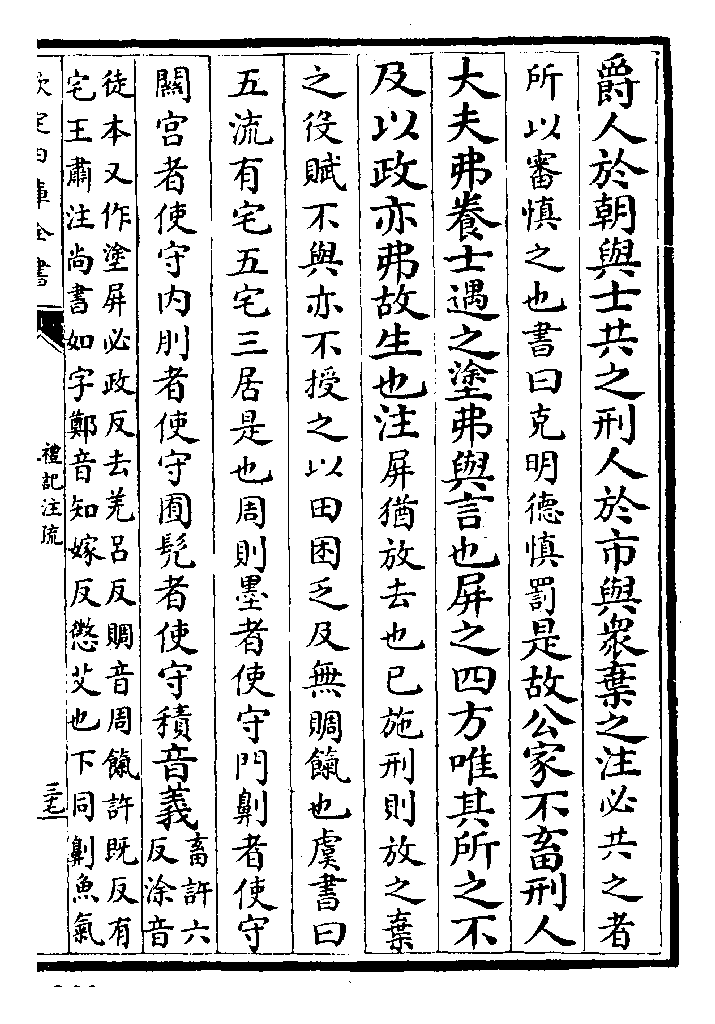 爵人於朝與士共之刑人於市與衆棄之注必共之者
所以審慎之也書曰克明德慎罰是故公家不畜刑人
大夫弗養士遇之塗弗與言也屏之四方唯其所之不
及以政亦弗故生也注屏猶放去也已施刑則放之棄
之役賦不與亦不授之以田困乏及無賙餼也虞書曰
五流有宅五宅三居是也周則墨者使守門劓者使守
關宫者使守内刖者使守囿髡者使守積音義畜許六
反涂音
徒本又作塗屏必政反去羌呂反賙音周餼許既反有
宅王肅注尚書如字鄭音知嫁反懲艾也下同劓魚氣
欽定四庫全書
禮記注疏
三七